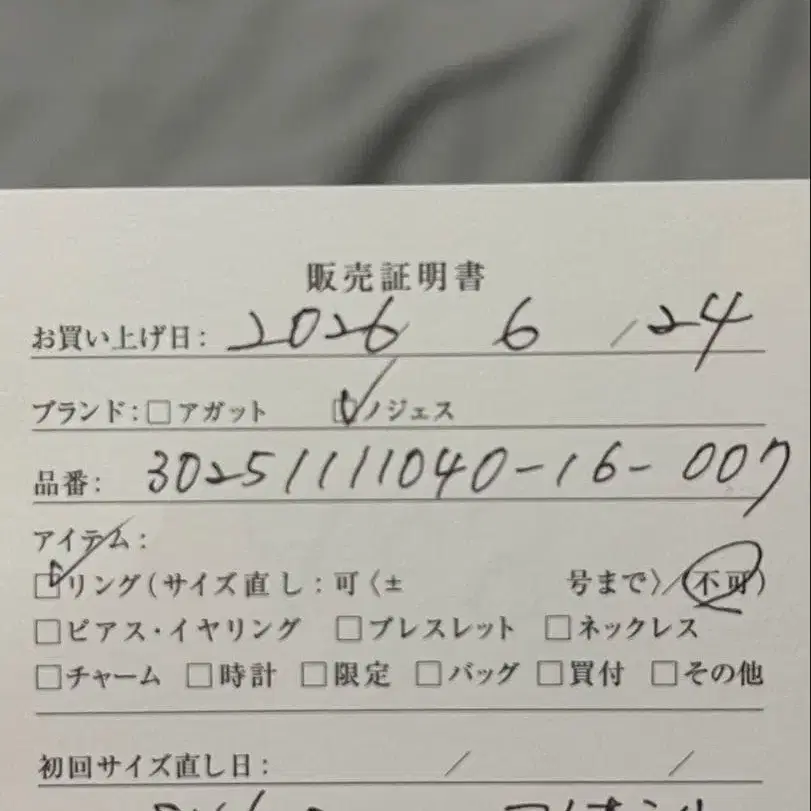 販売証明書
お買い上げ日: 2026 6 / 24
ブランド: □アガット ☑ノジェス
品番: 30251111040-16-007
アイテム:
☑リング(サイズ直し:可〈± 号まで〉/不可)
□ピアス・イヤリング □ブレスレット □ネックレス
□チャーム □時計 □限定 □バッグ □買付 □その他
初回サイズ直し日: / /